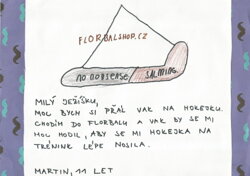 FLORBALSHOP.CZ
NO NONSENSE SALMING
MILÝ JEŽÍŠKU,
MOC BYCH SI PŘÁL VAK NA HOKEJKU.
CHODÍM DO FLORBALU A VAK BY SE MI
MOC HODIL, ABY SE MI HOKEJKA NA
TRÉNINK LÉPE NOSILA.
MARTIN, 11 LET